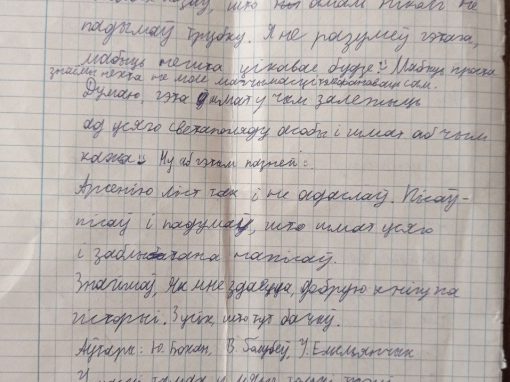 што амаль ніколі не
падымаў трубку. Я не разумеў гэтага,
мабыць нешта цікавае будзе". Мабыць проста
знаёмы нехта не мае магчымасці тэлефанаваць сам.
Думаю, гэта шмат у чым залежыць
ад усяго светапогляду асобы і шмат аб чым
кажа. Ну аб гэтым пазней.
Арсенію ліст так і не адаслаў. Пісаў-
пісаў і падумаў, што шмат усяго
і заблытана напісаў.
Знайшоў, як мне здаецца, добрую кнігу па
гісторыі. З усіх, што тут бачыў.
Аўтары: Ю. Бохан, В. Голубеў, У. Емельянчык